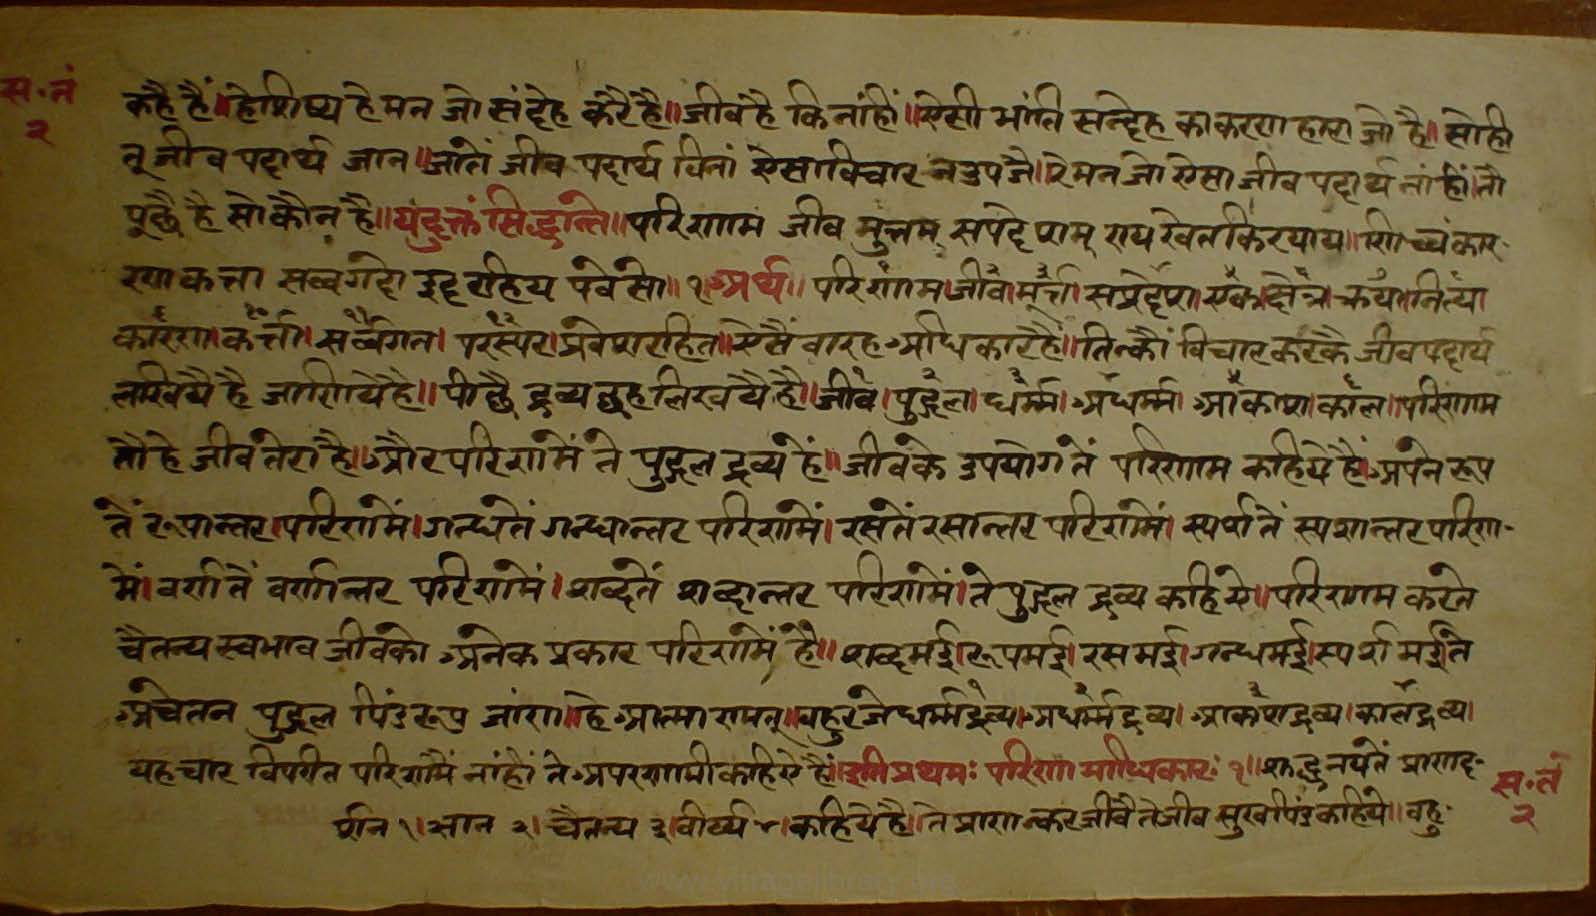 स॰तं
२
कहै हैं॥ हे शिष्य हे मन जो संदेह करै है॥ जीव है कि नांहीं॥ ऐसी भांति सन्देह का करणा हारा जो है॥ सो ही
तू जीव पदार्थ जान॥ जातें जीव पदार्थ विनां ऐसा विचार न उपजै॥ रे मन जो ऐसा जीव पदार्थ नांहीं॥ तौ
पूछै है सो कौन है॥ यदुक्तं सिद्धान्ते॥ परिणाम जीव मुत्तम् सपदेशम् एय खेत किरयाय॥ णिच्चं कार॰
रण कत्ता सव्वगदो इदरहिय पवेसो॥ १॥ अर्थ॥ परिणाम। जीव। मूर्त्ति। सप्रदेश। एक। क्षेत्र। क्रया। नित्य।
कारण। कर्त्ता। सर्व्वगत। परस्पर। प्रवेश रहित॥ ऐसें बारह अधिकार हैं॥ तिन्कौं विचार करकै जीव पदार्थ
लखियै है जाणियै है॥ पीछै द्रव्य छह लिखयै है॥ जीव। पुद्गल। धर्म्म। अधर्म्म। आकाश। काल। परिणाम
तौ हे जीव तेरा है॥ और परिणमें ते पुद्गल द्रव्य हैं॥ जीवके उपयोग तें परिणाम कहिये हैं॥ अपने रूप
तें रूपान्तर। परिणमें। गन्धतें गन्धान्तर परिणमें। रसतें रसान्तर परिणमें। स्पर्शतें स्पशान्तर परिण॰
में। वर्णतें वर्णान्तर परिणमें। शब्दतें शब्दान्तर परिणमें। ते पुद्गल द्रव्य कहिये॥ परिणाम करते
चैतन्य स्वभाव जीवको अनेक प्रकार परिणमें है॥ शब्दमई। रूपमई। रसमई। गन्धमई। स्पर्शमई ते
अचेतन पुद्गल पिंड रूप जांण॥ हे आत्मा रामन्॥ बहुर जे धर्म्मद्रव्य। अधर्म्मद्रव्य। आकाशद्रव्य। कालद्रव्य।
यह चार विपरीत परिणमैं नांहीं ते अपरणामी कहिऐ हैं॥ इति प्रथमः परिणामाधिकारः १॥ शुद्ध नयतें प्राण द॰
र्शन १। ज्ञान २। चैतन्य ३। वीर्य्य ४। कहिये है॥ ते प्राणन्कर जीवै ते जीव सुखपिंड कहिये॥ बहु॰
स॰तं
२